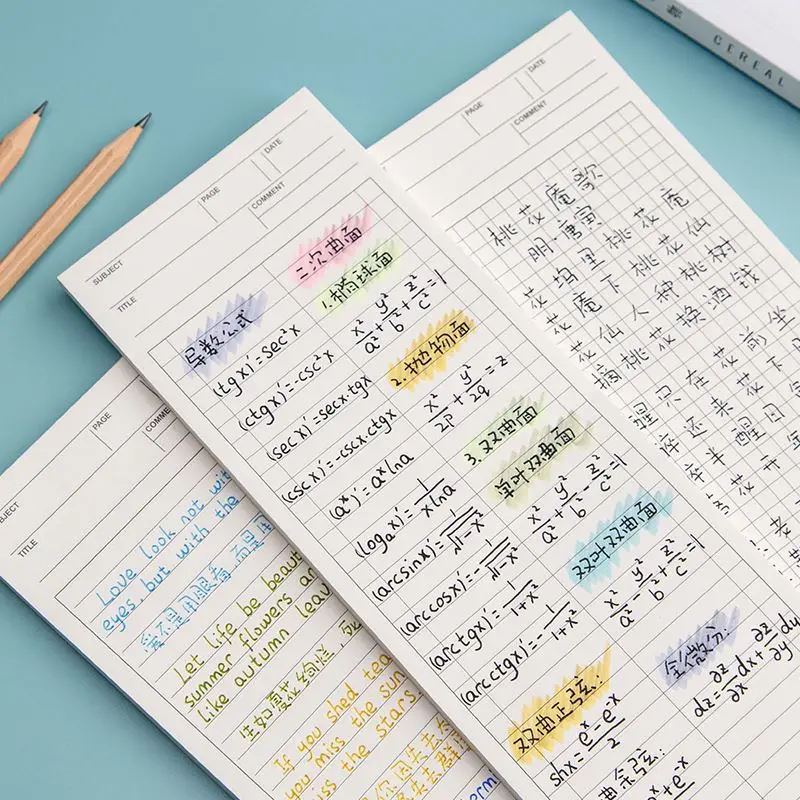 CEREAL
SUBJECT
PAGE
DATE
COMMENT
TITLE
导数公式
(tgx)'=sec²x
(ctgx)'=-csc²x
(secx)'=secx·tgx
(cscx)'=-cscx.ctgx
(aˣ)'=aˣlna
(logₐx)'=1/(xlna)
(arcsinx)'=1/√(1-x²)
(arccosx)'=-1/√(1-x²)
(arctgx)'=1/(1+x²)
(arcctgx)'=-1/(1+x²)
二次曲面
1.椭球面
x²/a²+y²/b²+z²/c²=1
2.抛物面
x²/2p+y²/2q=z
3.双曲面
单叶双曲面
x²/a²+y²/b²-z²/c²=1
双叶双曲面
x²/a²-y²/b²+z²/c²=1
全微分:
dz=∂z/∂x dx+∂z/∂y dy
双曲正弦:
shx=(eˣ-e⁻ˣ)/2
曲余弦:
PAGE
DATE
COMMENT
桃花庵歌
明·唐寅
花坞里桃花庵
花庵下桃花仙
花仙人种桃树
摘桃花换酒钱
醒只在花前坐
还来花下
半醒日
花开
PAGE
TITLE
Love look not wit
eyes, but with the
爱不是用眼看,而是用
Let life be beaut
summer flowers an
like autumn leav
生如夏花绚烂,死
If you shed tea
you miss the sun
miss the stars.